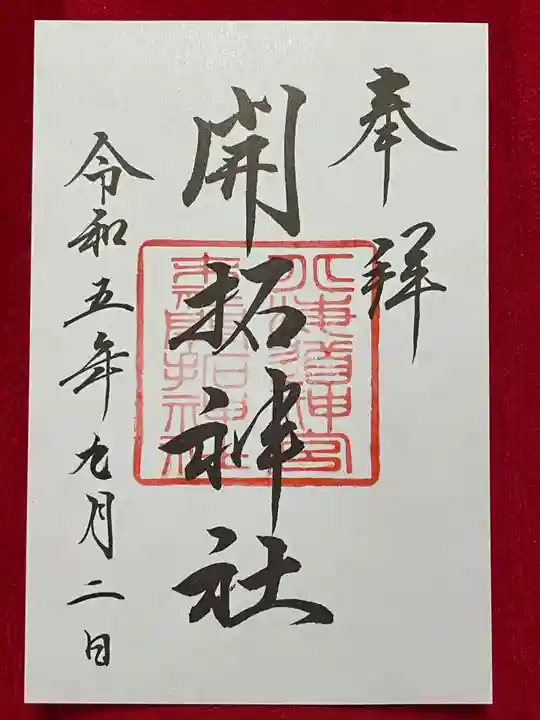 奉拝
開拓神社
北海道神宮
末社開拓神社
令和五年九月二日